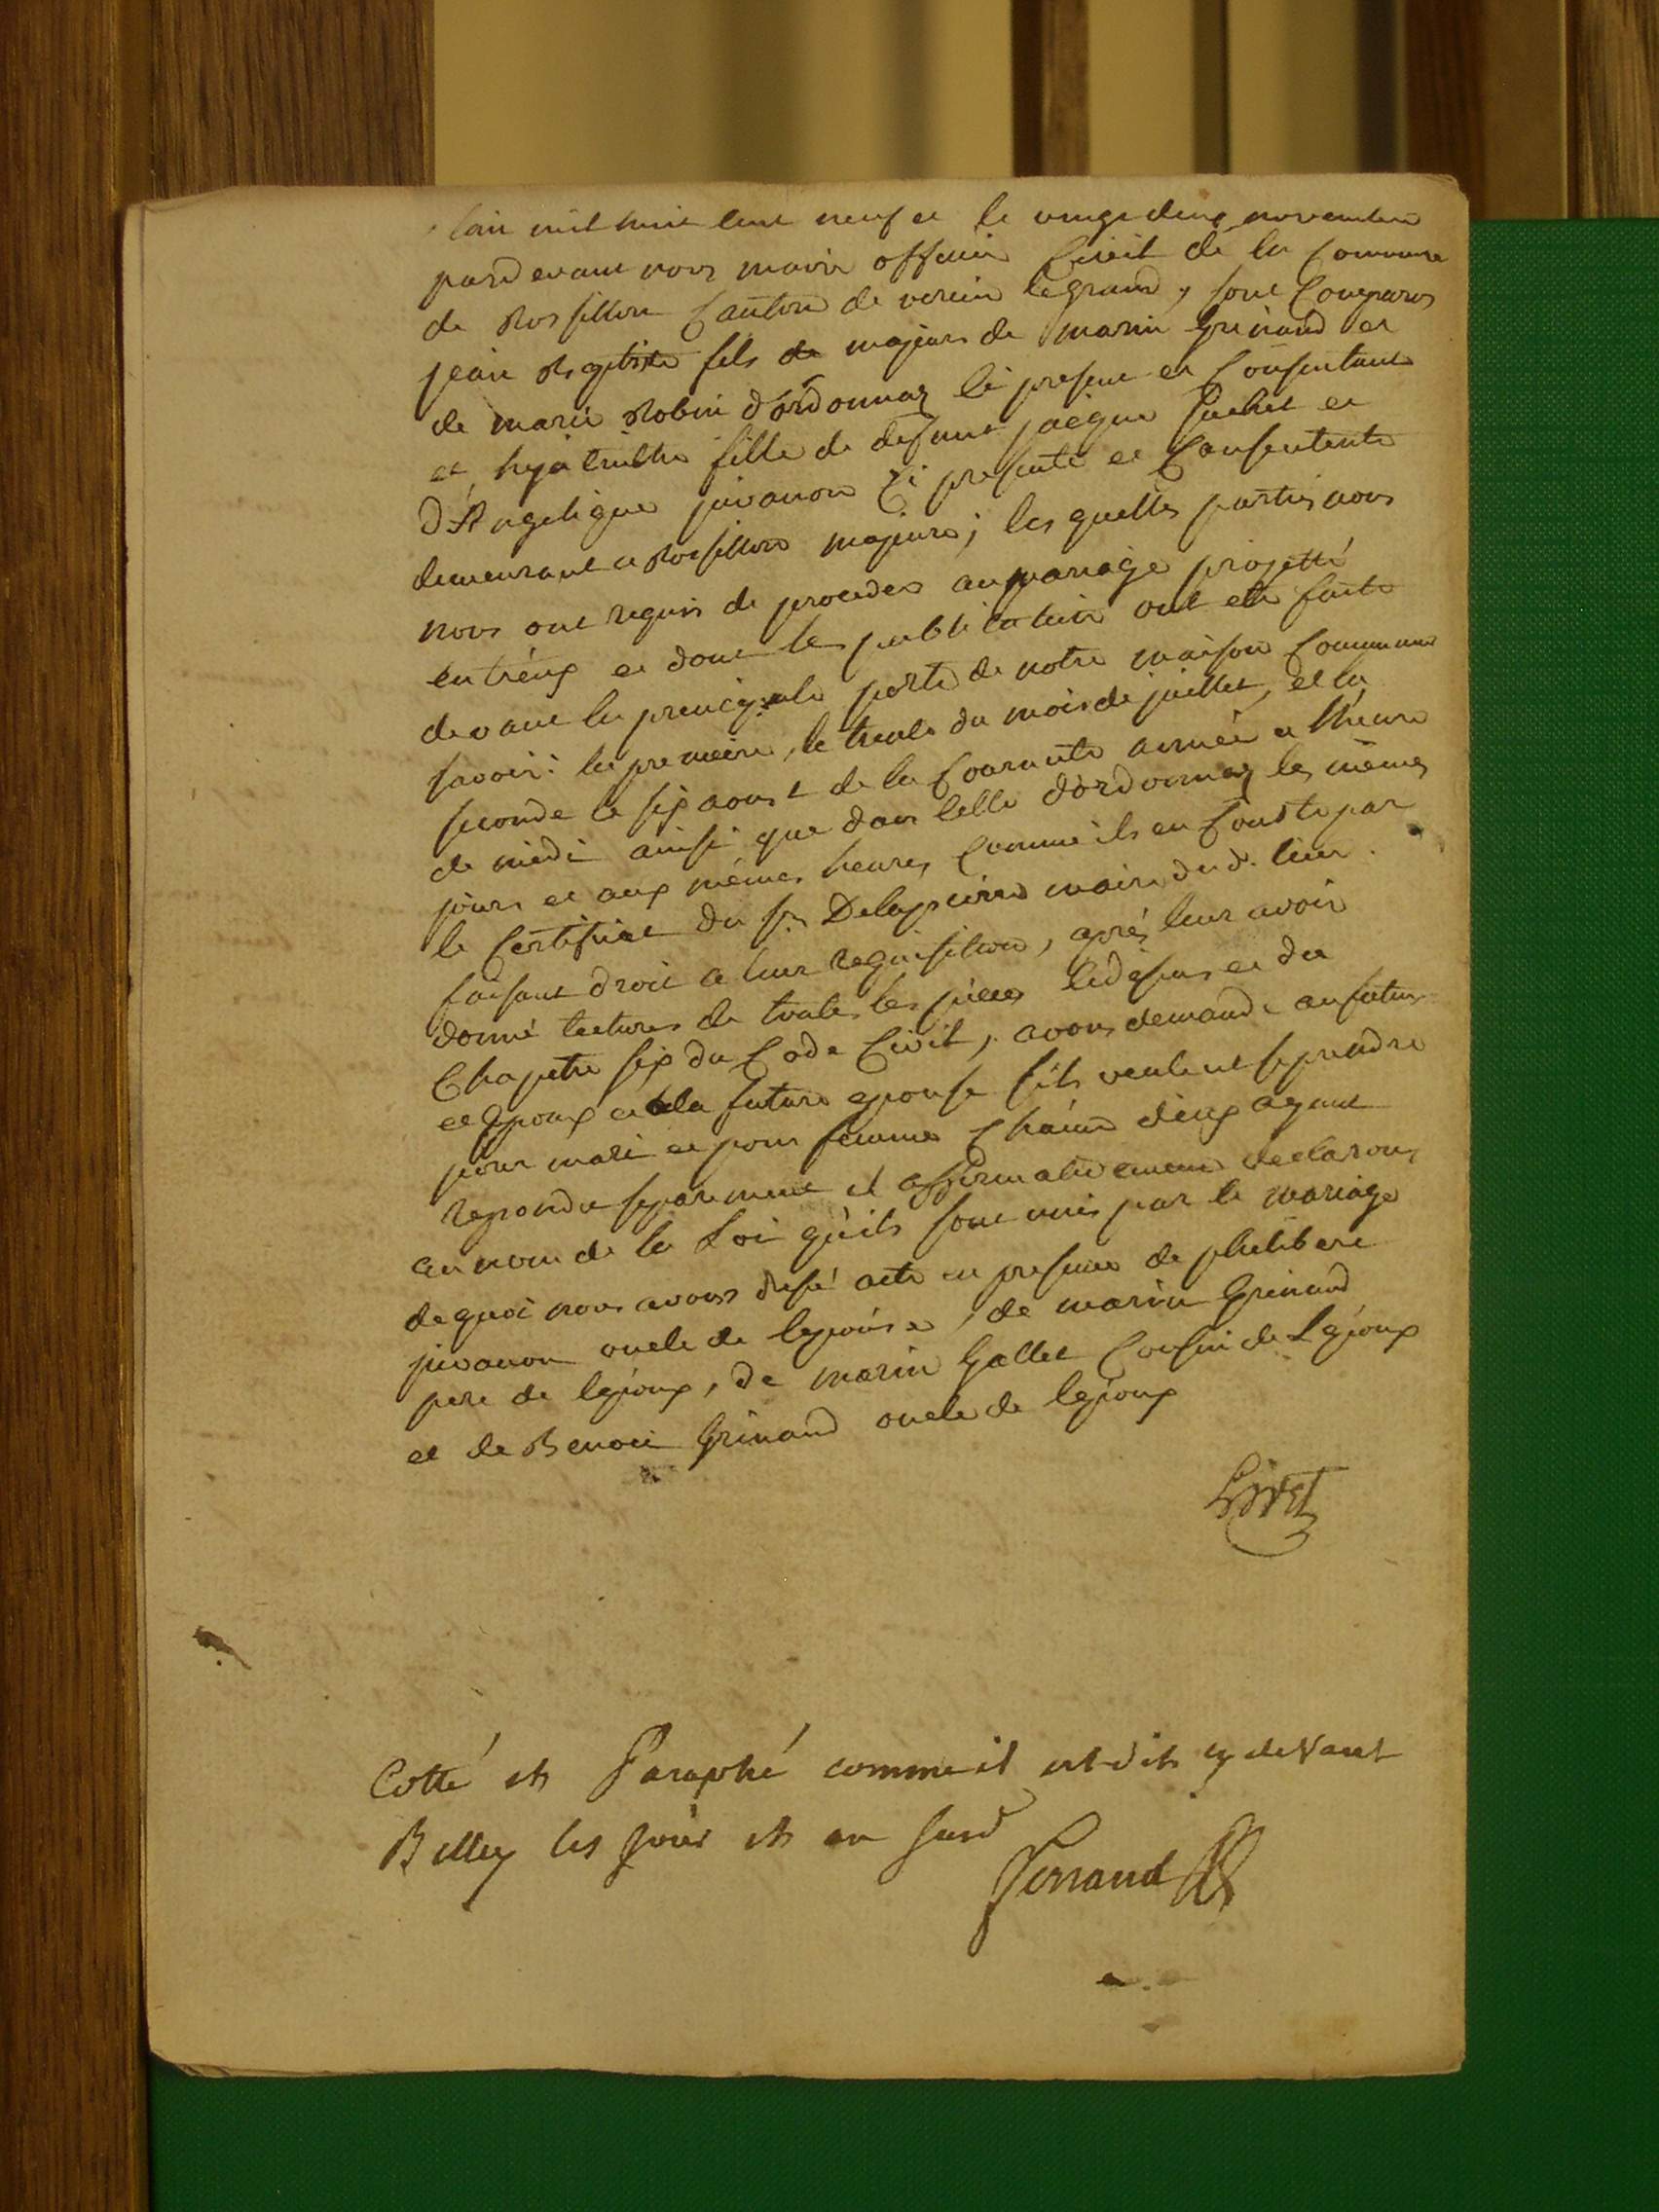 lan mil huit cent neuf et le vingt deux novembre
pardevant nous maire officier Civil de la Commune
de Rossillon Canton de virieu legrand, sont Comparus
jean Baptiste fils de majeur de marin Grinand et
de marie Robin d'ordonnaz ci present et Consentant
et hyatinthe fille de defunt jacque Pachet et
d'Angelique juvanon Ci presente et Consentente
demeurant a Rossillon majeure; les quelles parties nous
nous ont requis de proceder au mariage projetté
entr'eux et dont les publication ont eté faite
devant la principale porte de notre maison Commune
savoir: la premiere, le trente du mois de juillet, et la
seconde le six aoust de la Courante année a l'heure
de midi ainsi que dans Celle d'ordonnaz les mêmes
jours et aux mêmes heures Comme ils en Conste par
le Certificat du sr. Delapierre maire dud. lieu.
faisant droit a leur requisition, après leur avoir
donné lectures de toutes les pieces cidessus et du
Chapitre six du Code Civil, avons demandé au futur
et Epoux et a la future epouse s'ils veulent se prendre
pour mari et pour femme Chacun d'eux ayant
repondu separement et affirmativement declarons
au nom de la Loi qu'ils sont unis par le mariage
de quoi nous avons dressé acte en presence de philibert
juvanon oncle de lepouse, de marin Grinand
pere de lepoux, de marin Gallet Cousin de Lepoux
et de Benoit Grinand oncle de lepoux
Cotté et Paraphé comme il est dit cy devant
Belley les jour et an susd
Ferrand